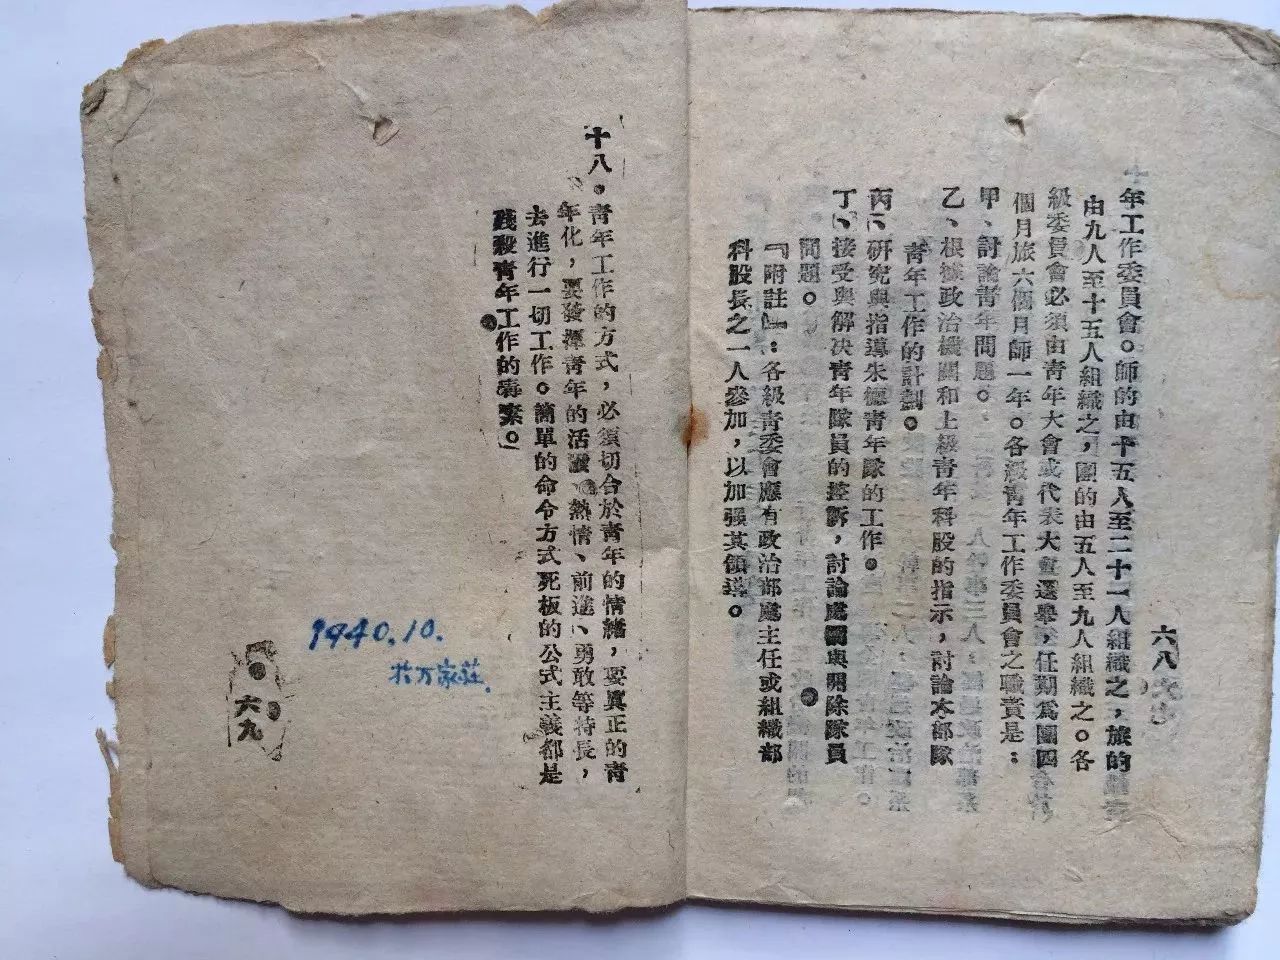 六八
年工作委員會。師的由十五人至二十一人組織之，旅的
由九人至十五人組織之，團的由五人至九人組織之。各
級委員會必須由青年大會或代表大會選舉，任期爲團四
個月旅六個月師一年。各級青年工作委員會之職責是：
甲、討論青年問題。
乙、根據政治機關和上級青年科股的指示，討論本部隊
青年工作的計劃。
丙、研究與指導朱德青年隊的工作。
丁、接受與解决青年隊員的控訴，討論處罰與開除隊員
問題。
『附註』：各級青委會應有政治部處主任或組織部
科股長之一人參加，以加强其領導。
十八。青年工作的方式，必須切合於青年的情緒，要眞正的青
年化，要發揮青年的活潑、熱情、前進、勇敢等特長，
去進行一切工作。簡單的命令方式死板的公式主義都是
殘殺青年工作的毒素。
1940.10.
於万家莊.
六九